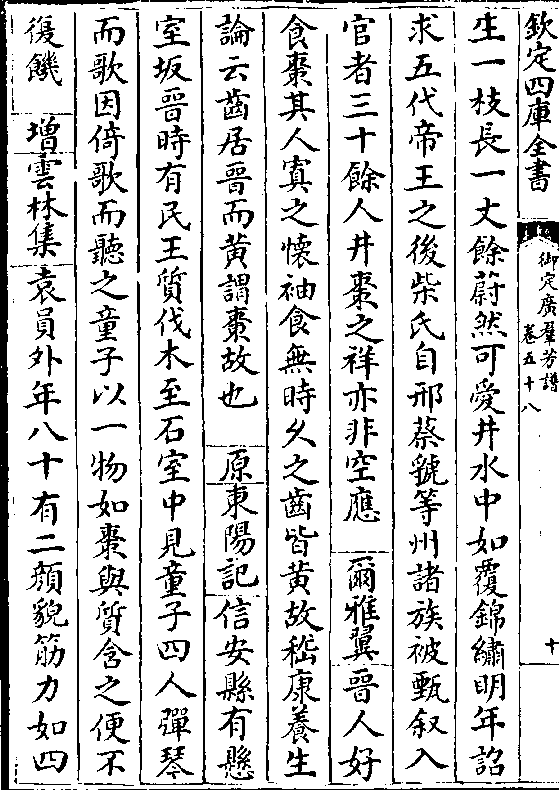 欽定四庫全書
御定廣羣芳譜
卷五十八
十
生一枝長一丈餘蔚然可愛井水中如覆錦繡明年詔
求五代帝王之後柴氏自邢蔡虢等州諸族被甄叙入
官者三十餘人井棗之祥亦非空應 爾雅翼晉人好
食棗其人寘之懷袖食無時久之齒皆黃故嵇康養生
論云齒居晉而黃謂棗故也 原東陽記信安縣有懸
室坂晉時有民王質伐木至石室中見童子四人彈琴
而歌因倚歌而聽之童子以一物如棗與質含之便不
復饑 增雲林集袁員外年八十有二顏貌筋力如四